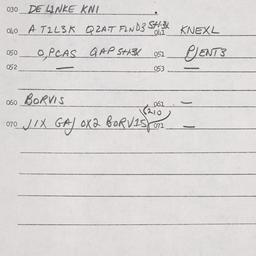 030 DE LINKE KNI
040 A T2L3K Q2AT FIND3 SH3K 041 KNEXL
050 O,PCAS GAP SH3K 051 PJENT3
052 — 053 —
060 BORVIS 061 —
070 JIX GAJ OX2 BORVIS (210) 071 —